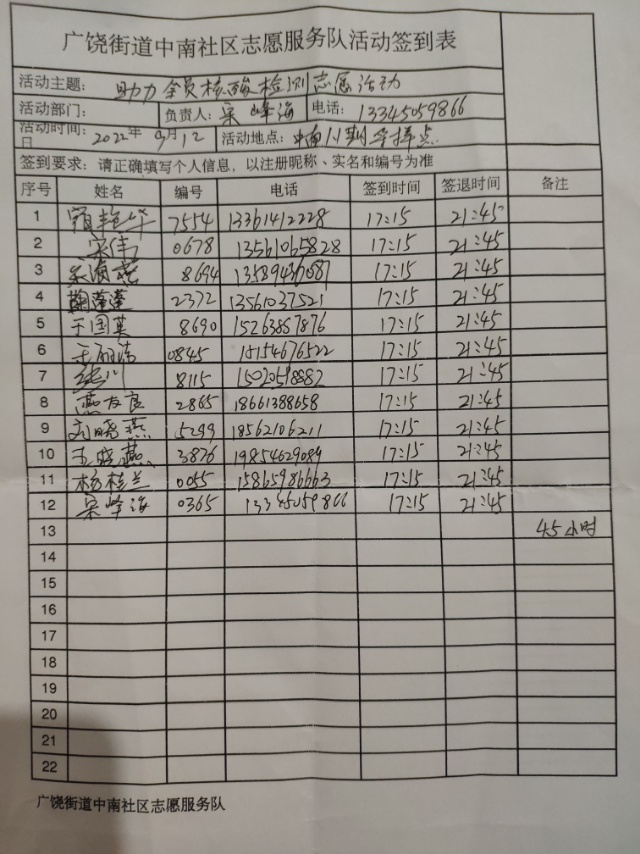 广饶街道中南社区志愿服务队活动签到表
活动主题: 助力全员核酸检测志愿活动
活动部门: 负责人: 宋峰海 电话: 13345059866
活动时间: 2022年9月12日 活动地点: 采样点
签到要求: 请正确填写个人信息、以注册昵称、实名和编号为准
序号 姓名 编号 电话 签到时间 签退时间 备注
1 7554 13361412228 17:15 21:45
2 宋伟 0678 13561065828 17:15 21:45
3 8694 17:15 21:45
4 鞠蓬蓬 2372 13561037521 17:15 21:45
5 于国英 8690 15263857876 17:15 21:45
6 0845 15154676522 17:15 21:45
7 8115 17:15 21:45
8 燕友良 2865 18661388658 17:15 21:45
9 刘晓燕 5299 18562106211 17:15 21:45
10 3876 19854629084 17:15 21:45
11 杨桂兰 0055 15865986663 17:15 21:45
12 宋峰海 0365 13345059866 17:15 21:45
13 4.5小时
14
15
16
17
18
19
20
21
22
广饶街道中南社区志愿服务队